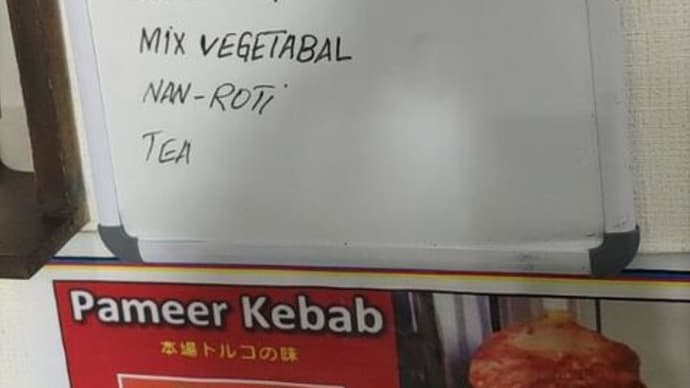 MIX VEGETABAL
NAN-ROTi
TEA
Pameer Kebab
本場トルコの味